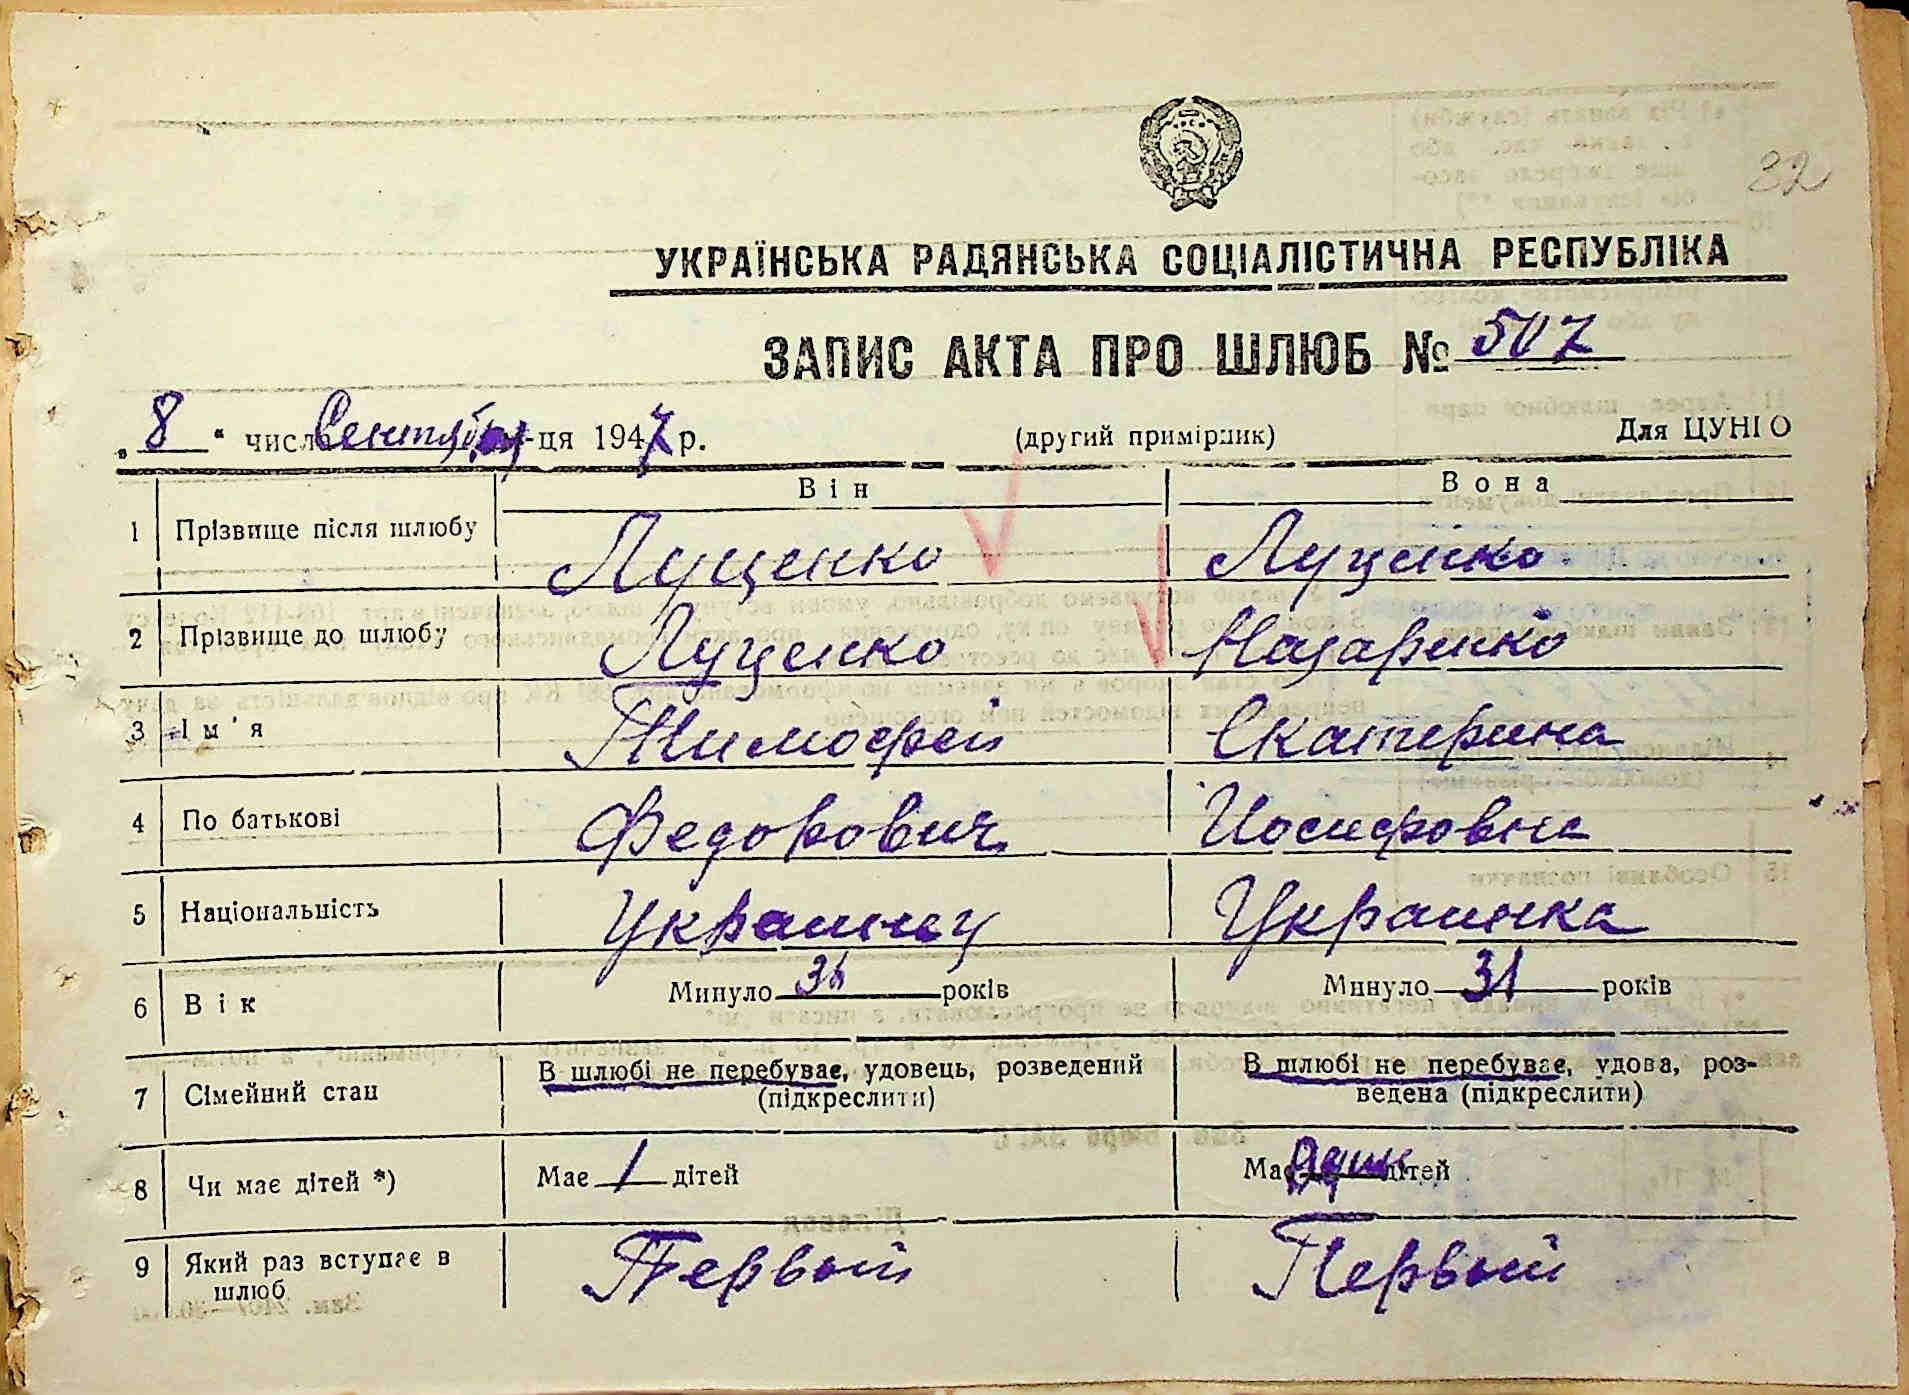 32
УКРАЇНСЬКА РАДЯНСЬКА СОЦІАЛІСТИЧНА РЕСПУБЛІКА
ЗАПИС АКТА ПРО ШЛЮБ № 507
„ 8 “ числа Сентября м-ця 1947 р. (другий примірник) Для ЦУНГО
Він Вона
1 Прізвище після шлюбу Луценко Луценко
2 Прізвище до шлюбу Луценко Назаренко
3 Ім'я Тимофей Екатерина
4 По батькові Федорович Иосифовна
5 Національність Украинец Украинка
6 Вік Минуло років Минуло 31 років
7 Сімейний стан В шлюбі не перебуває, удовець, розведений В шлюбі не перебуває, удова, роз-
(підкреслити) ведена (підкреслити)
8 Чи має дітей *) Має 1 дітей Має Один дітей
9 Який раз вступає в Первый Первый
шлюб